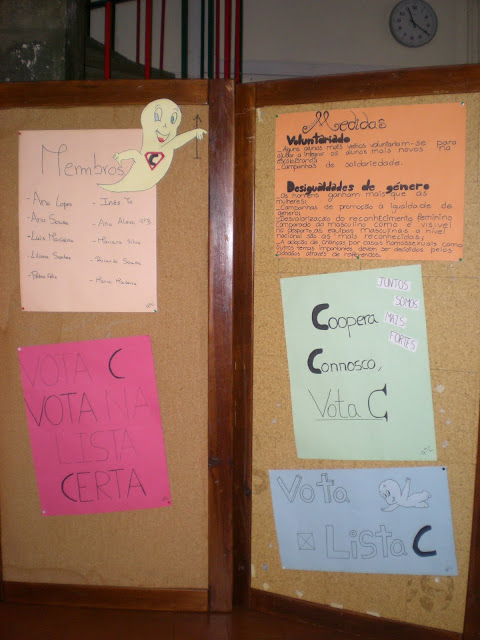 Membros
C
- Ana Lopes
- Ana Sousa
- Inês Sá
- Mariana Silva
VOTA C
VOTA NA
LISTA
CERTA
Medidas
Voluntariado
_Alguns alunos mais velhos voluntariam-se para
ajudar a integrar os alunos mais novos na
_Campanhas de solidariedade.
Desigualdades de género
_Os homens ganham mais que as
mulheres;
_Campanhas de promoção à igualdade de
género;
_Desvalorização do reconhecimento feminino
comparado ao masculino como é visível
no desporto as equipas masculinas a nível
nacional são as mais reconhecidas;
_A adoção de crianças por casais homossexuais como
outros temas importantes devem ser decididos pelos
cidadãos através de referendos.
JUNTOS
SOMOS
MAIS
FORTES
Coopera
Connosco,
Vota C
Vota
Lista C